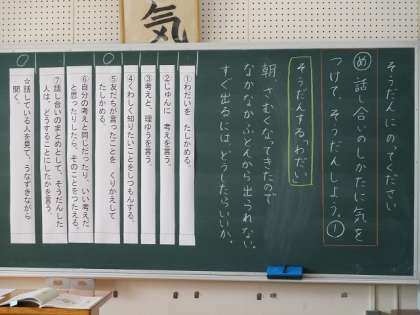 気
そうだんにのってください
め 話し合いのしかたに気を
つけて そうだんしよう。①
そうだんするわだい
朝、さむくなってきたので
なかなかふとんから出られない。
すぐ出るには、どうしたらいいか。
①わだいを たしかめる。
②じゅんに 考えを言う。
③考えと、理ゆうを言う。
④くわしく知りたいことをしつもんする。
⑤友だちが言ったことを くりかえして
たしかめる。
⑥自分の考えと同じだったり、いい考えだ
と思ったりしたら、そのことをつたえる。
⑦話し合いのまとめとして、そうだんした
人は、どうすることにしたかを言う。
☆話している人を見て、うなずきながら
聞く。